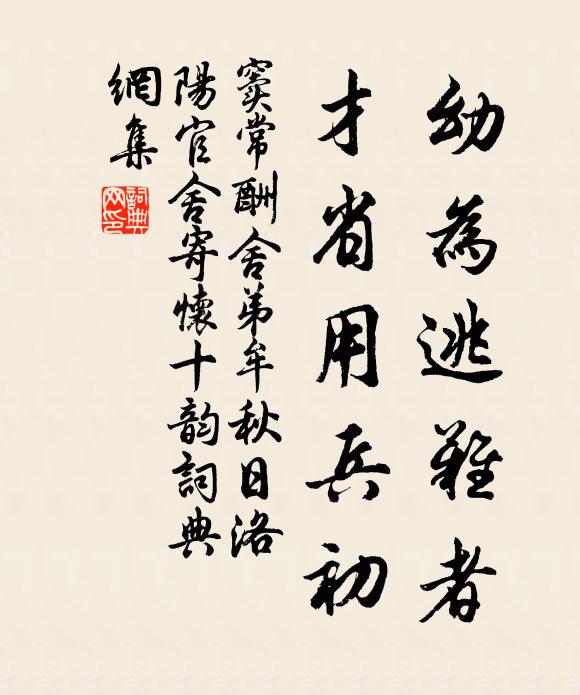 幼為逃難者
才省用兵初
竇常酬舍弟牟秋日洛
陽官舍寄懷十韵詞典
網集
詞典
网印